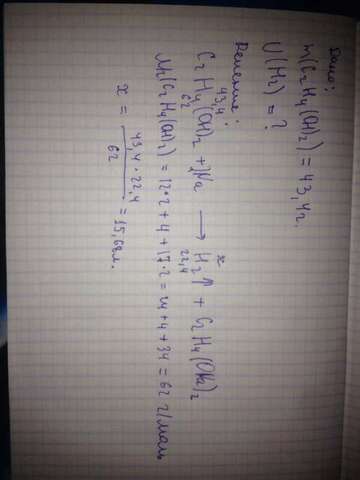 Дано:
m(C₂H₄(OH)₂) = 43,4г.
V(H₂) = ?
Решение:
43,4 x
C₂H₄(OH)₂ + 2Na → H₂↑ + C₂H₄(ONa)₂
62 22,4
Mr(C₂H₄(OH)₂) = 12·2 + 4 + 17·2 = 24 + 4 + 34 = 62 г/моль
x = 43,4 · 22,4 / 62 = 15,68л.